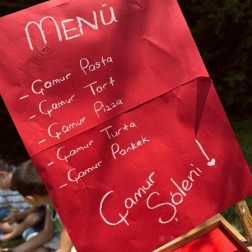 MENÜ
- Çamur Pasta
- Çamur Tart
- Çamur Pizza
- Çamur Turta
- Çamur Pankek
Çamur
Şöleni!